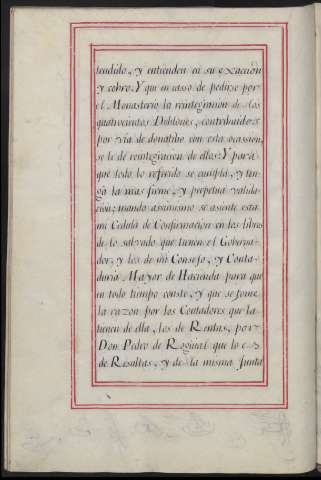 tendido, y entienden en su exaccion
y cobro. Y que en casso de pedirse por
el Monasterio la reintegracion de los
quatrocientos Doblones, contribuidos
por via de donatiuo con esta ocassion,
se le dè reintegracion de ellos: Y para
que todo lo referido se cumpla, y ten-
ga la mas firme, y perpetua valida-
cion; mando assimismo se assiente esta
mi Cedula de Confirmacion en los libros
de lo salvado que tienen el Governa-
dor, y los de mi Consejo, y Conta-
duria Mayor de Hacienda para que
en todo tiempo conste, y que se tome
la razon por los Contadores que la
tienen de ella, los de Rentas, por
Don Pedro de que lo es
de Resultas, y de la misma Junta